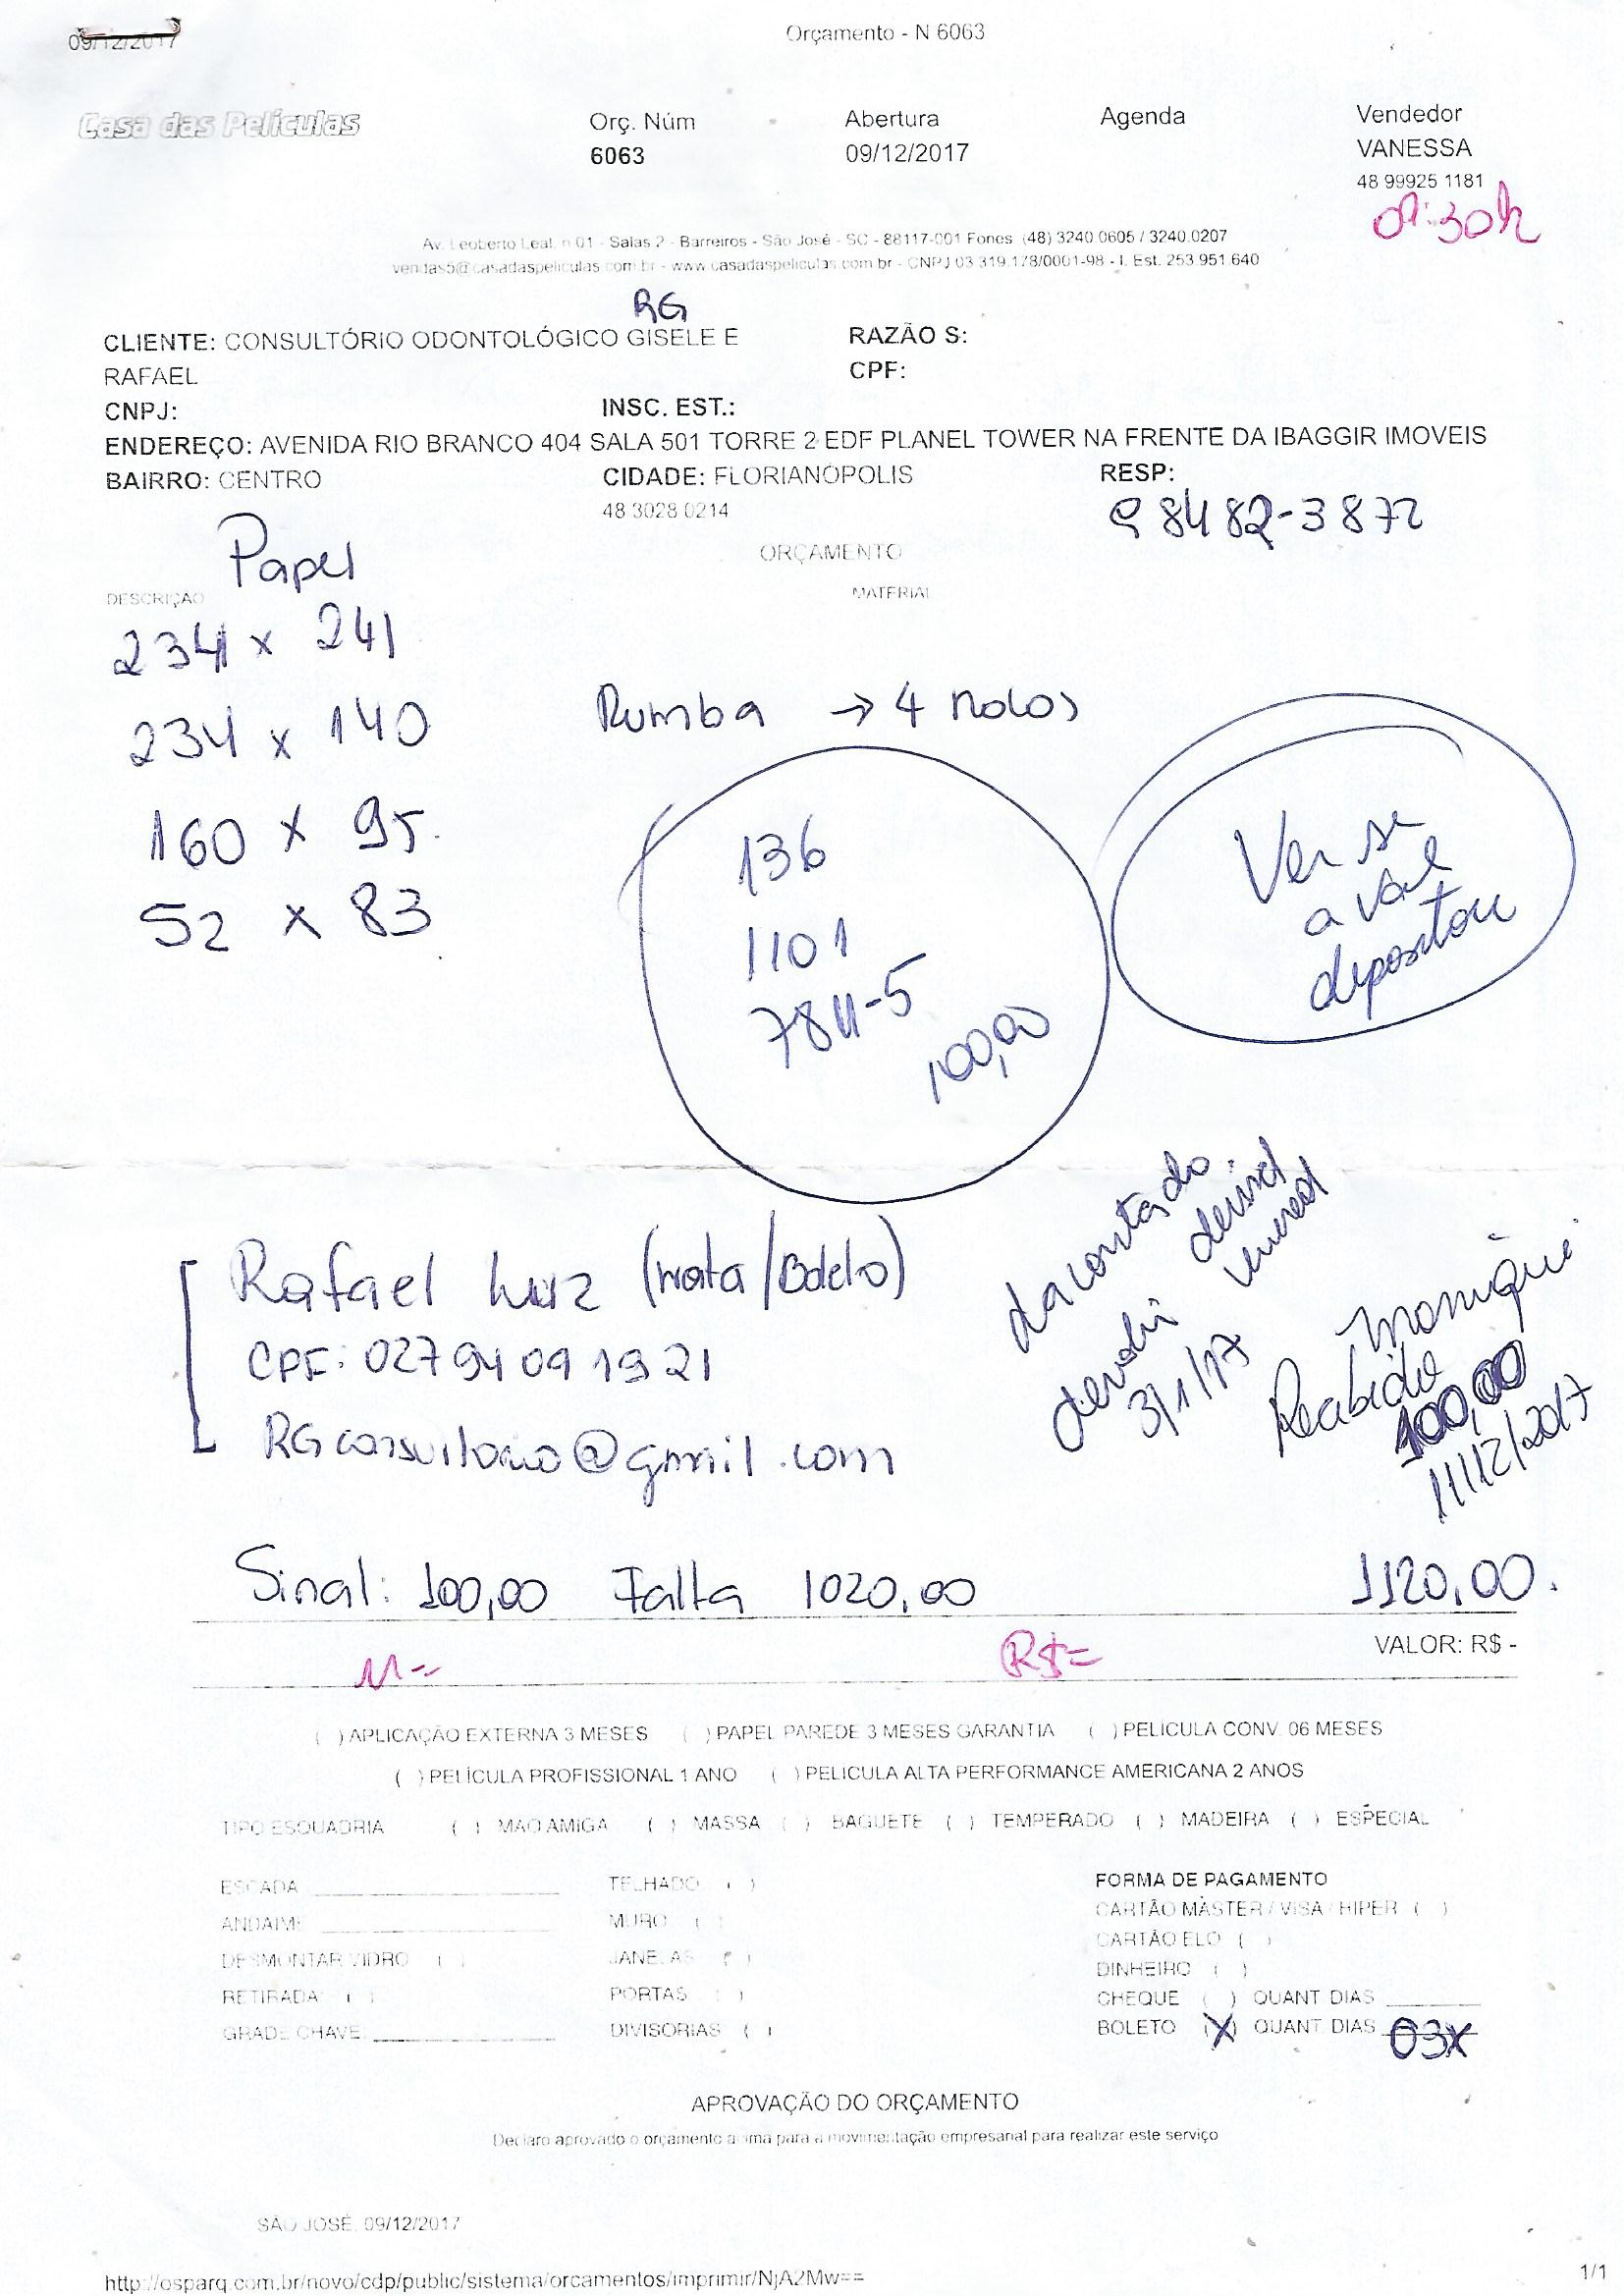 09/12/2017
Orçamento - N 6063
Casa das Películas
Orç. Núm
6063
Abertura
09/12/2017
Agenda
Vendedor
VANESSA
48 99925 1181
01:30h
Av. Leoberto Leal, n 01 - Salas 2 - Barreiros - São José - SC - 88117-001 Fones (48) 3240 0605 / 3240.0207
vendas5@casadaspeliculas.com.br - www.casadaspeliculas.com.br - CNPJ 03.319.178/0001-98 - I. Est. 253.951.640
RG
CLIENTE: CONSULTÓRIO ODONTOLÓGICO GISELE E
RAFAEL
RAZÃO S:
CPF:
CNPJ:
INSC. EST.:
ENDEREÇO: AVENIDA RIO BRANCO 404 SALA 501 TORRE 2 EDF PLANEL TOWER NA FRENTE DA IBAGGIR IMOVEIS
BAIRRO: CENTRO
CIDADE: FLORIANÓPOLIS
RESP:
48 3028 0214
98482-3872
Papel
ORÇAMENTO
DESCRIÇÃO
MATERIAL
234 x 241
234 x 140
160 x 95
52 x 83
Rumba → 4 rolos
136
1101
7811-5
100,00
Ver se
a Van
depositou
Rafael Luiz (nota/Boleto)
CPF: 02794091921
RGconsultorio@gmail.com
devolvi
3/1/17
Monique
Recebido
100,00
11/12/2017
Sinal: 100,00 Falta 1020,00
1120,00.
M=
R$=
VALOR: R$ -
( ) APLICAÇÃO EXTERNA 3 MESES ( ) PAPEL PAREDE 3 MESES GARANTIA ( ) PELICULA CONV. 06 MESES
( ) PELÍCULA PROFISSIONAL 1 ANO ( ) PELICULA ALTA PERFORMANCE AMERICANA 2 ANOS
TIPO ESQUADRIA ( ) MAO AMIGA ( ) MASSA ( ) BAGUETE ( ) TEMPERADO ( ) MADEIRA ( ) ESPECIAL
ESCADA
ANDAIME
DESMONTAR VIDRO ( )
RETIRADA ( )
GRADE CHAVE
TELHADO ( )
MURO ( )
JANELAS ( )
PORTAS ( )
DIVISORIAS ( )
FORMA DE PAGAMENTO
CARTÃO MASTER / VISA / HIPER ( )
CARTÃO ELO ( )
DINHEIRO ( )
CHEQUE ( ) QUANT DIAS
BOLETO (X) QUANT DIAS 03x
APROVAÇÃO DO ORÇAMENTO
Declaro aprovado o orçamento acima para a movimentação empresarial para realizar este serviço
SÃO JOSÉ, 09/12/2017
http://osparq.com.br/novo/cdp/public/sistema/orcamentos/imprimir/NjA2Mw==
1/1